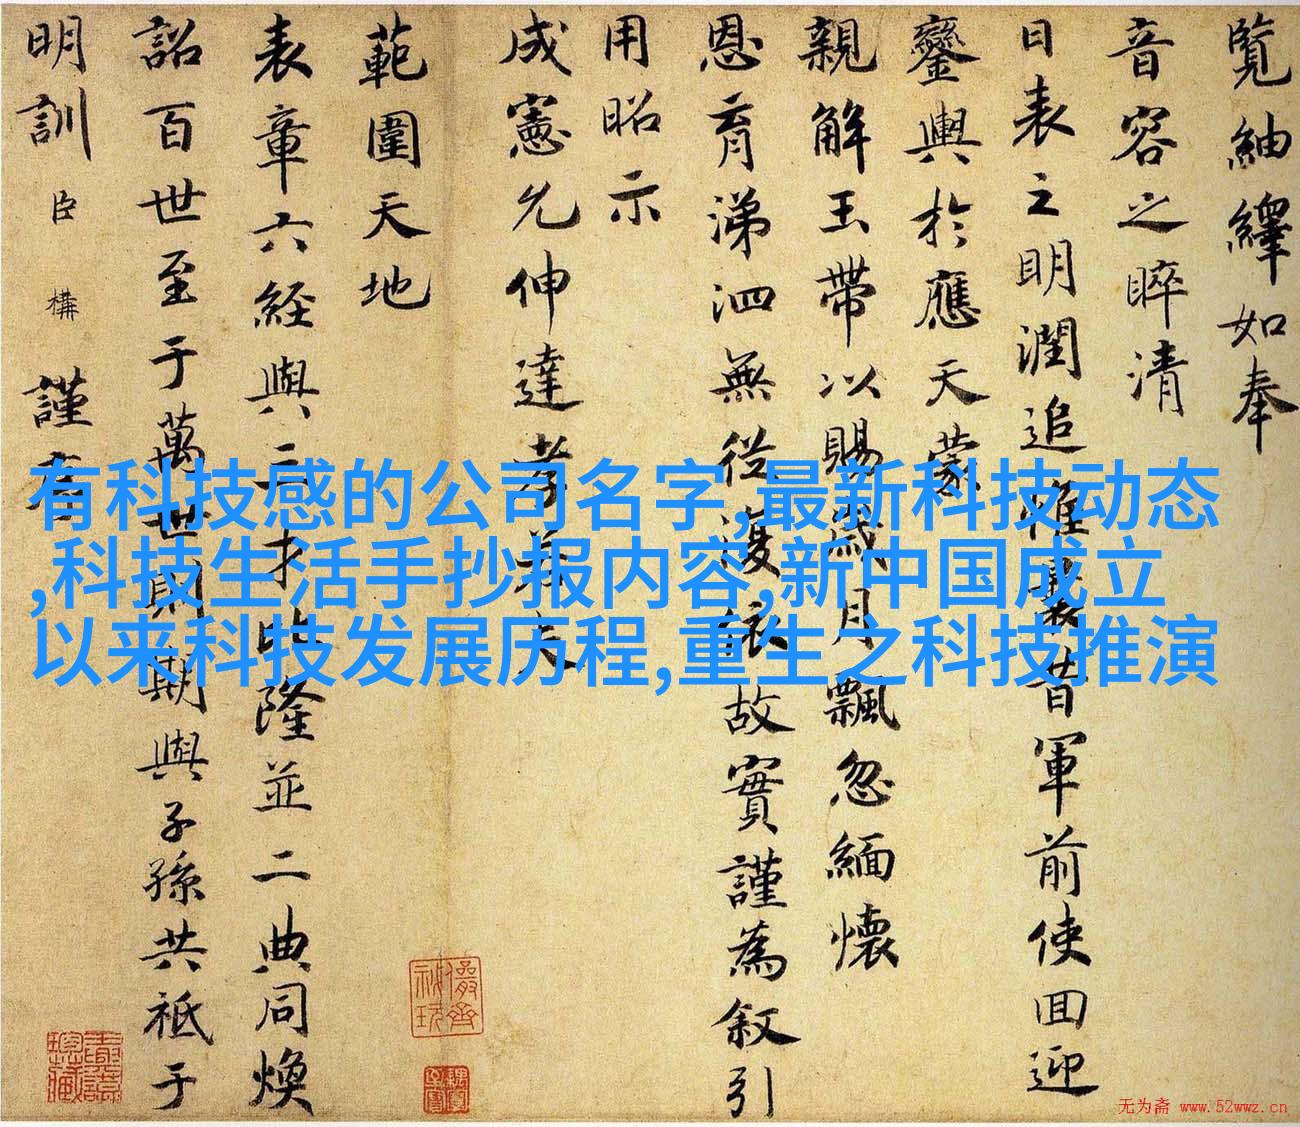 覽紬繹如奉
音容之睟清
日表之明潤追惟曩昔軍前使回迎
鑾輿於應天蒙
親解玉帶以賜歲月飄忽緬懷
恩育涕泗無從復依故實謹為叙引
用昭示
成憲允伸達孝若夫
範圍天地
表章六経與三才比隆並二典同煥
詔百世至于萬世則期與子孫共祗于
明訓臣構謹書
有科技感的公司名字,最新科技动态
,科技生活手抄报内容,新中国成立
以来科技发展历程,重生之科技推演
无为斋 www.52wwz.cn